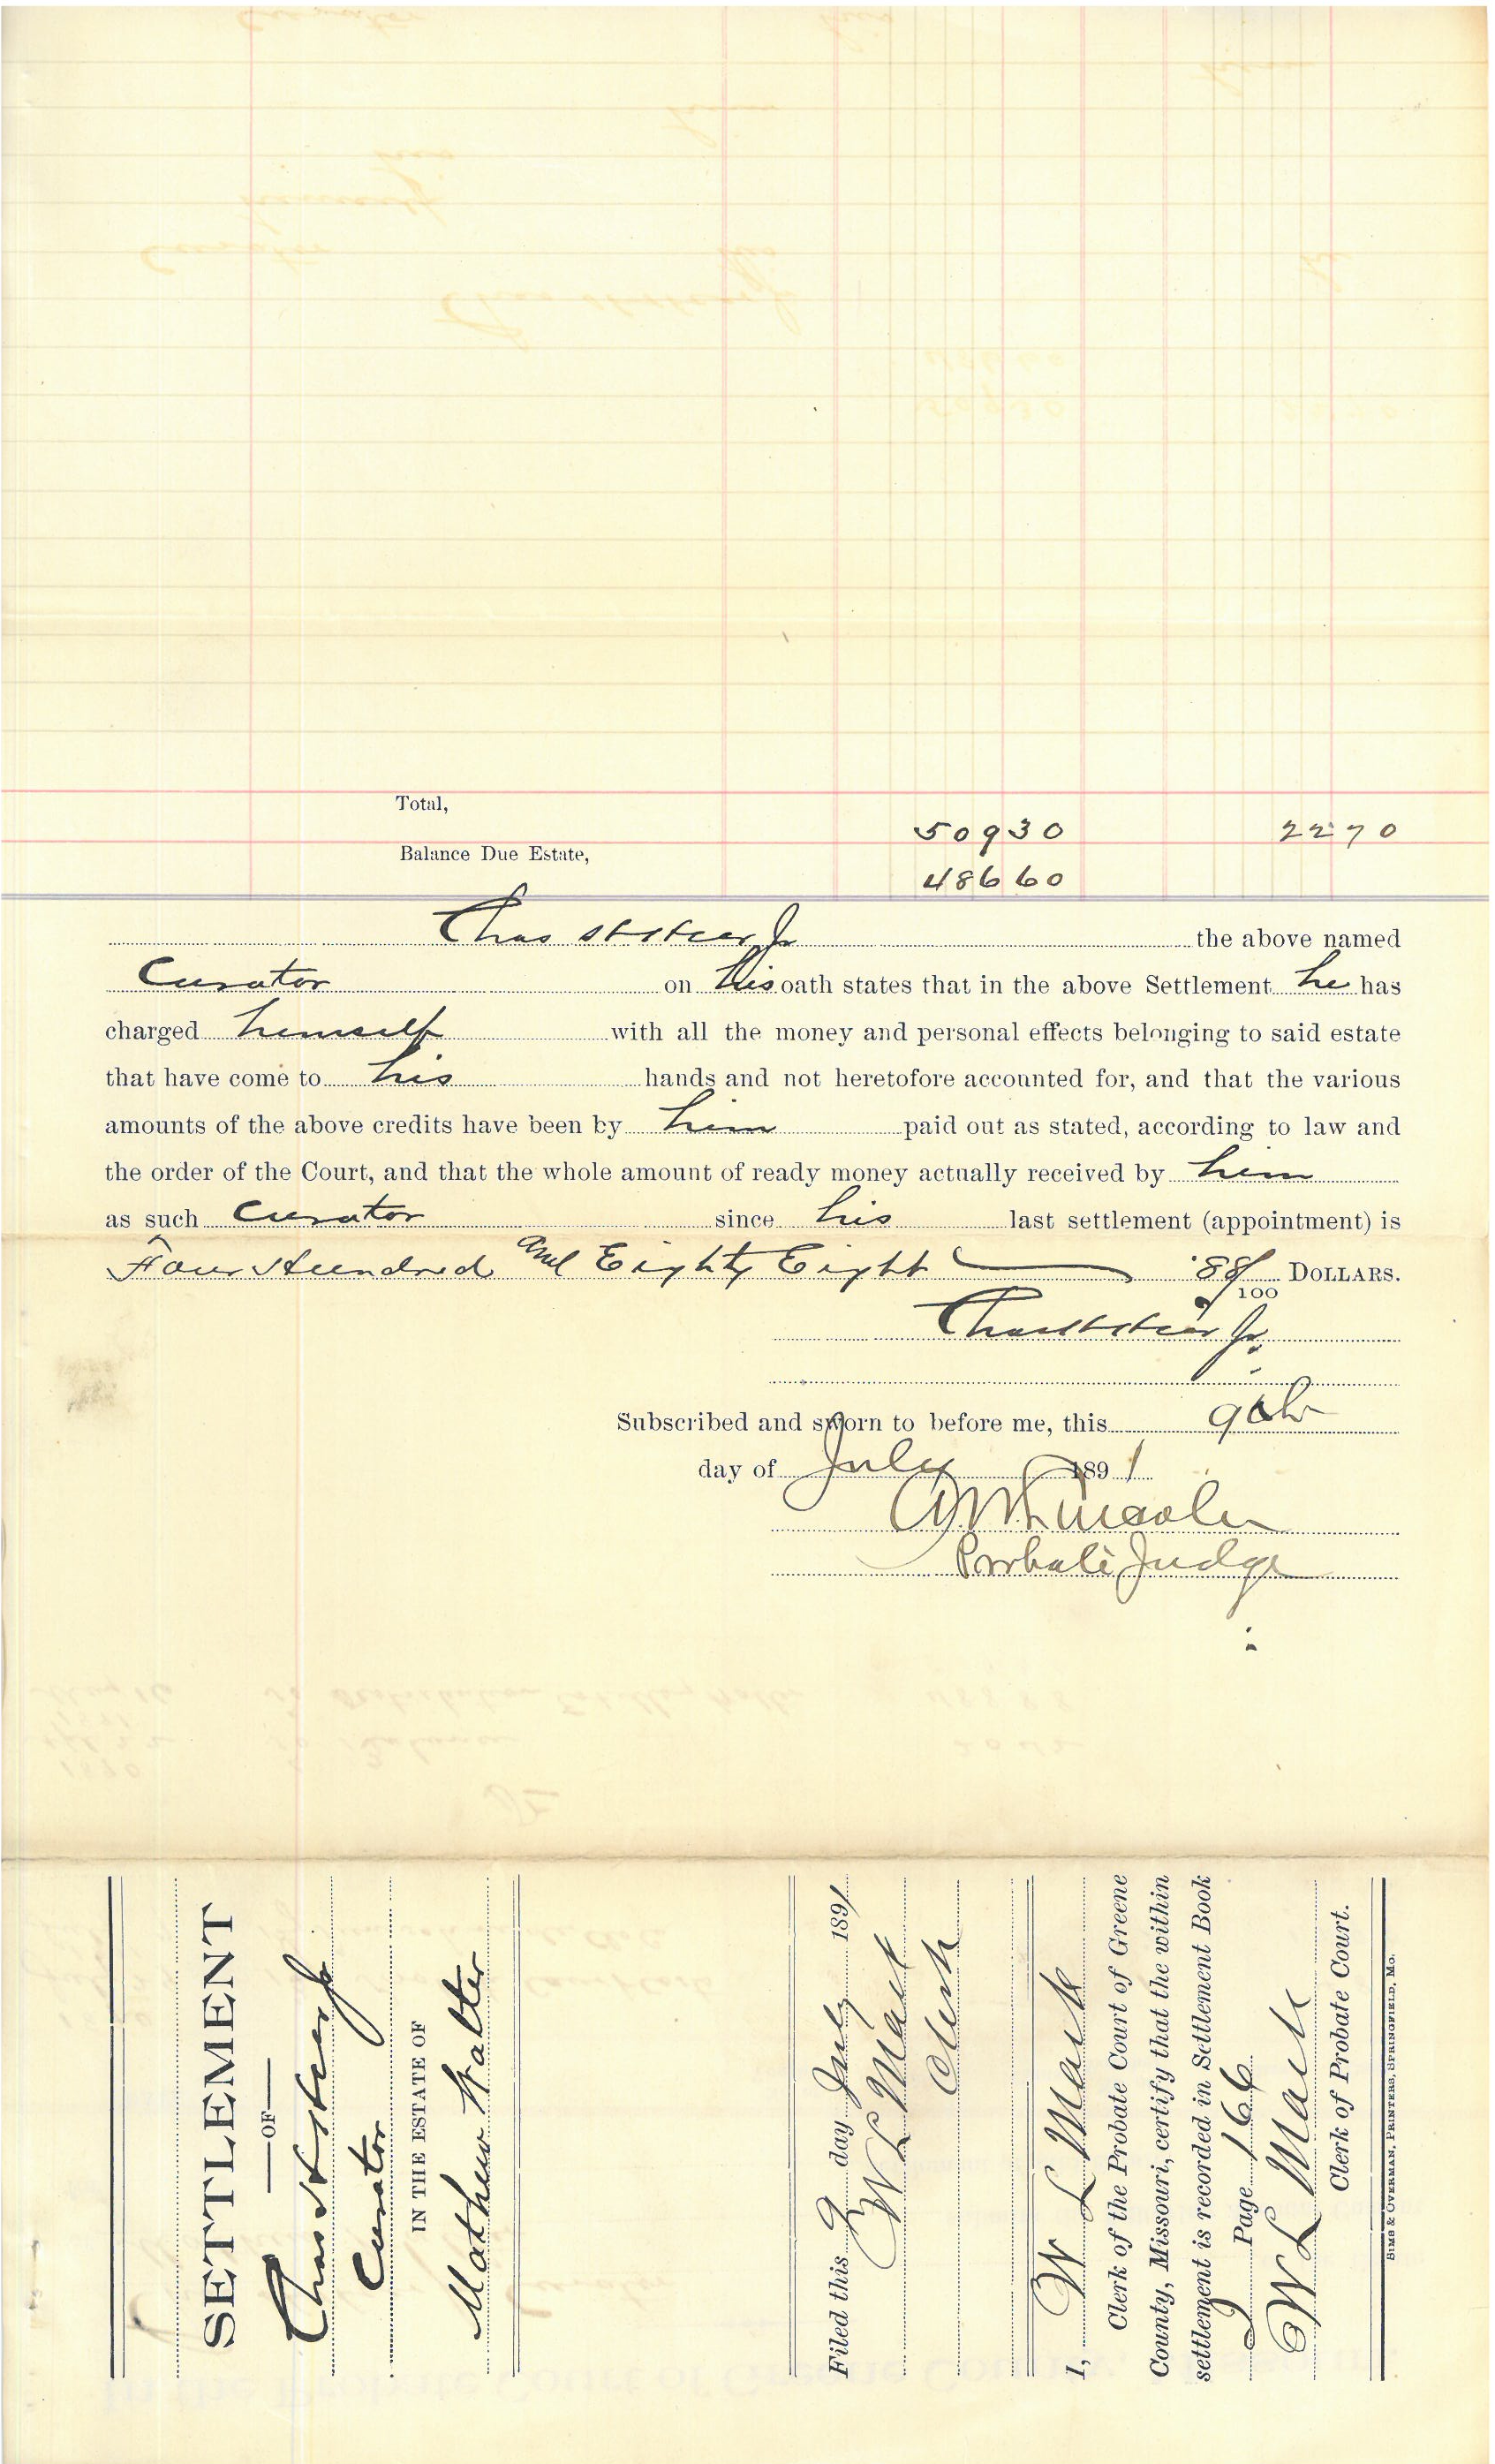 Total,
50930 2270
Balance Due Estate,
48660
Chas Jr the above named
Curator on his oath states that in the above Settlement he has
charged himself with all the money and personal effects belonging to said estate
that have come to his hands and not heretofore accounted for, and that the various
amounts of the above credits have been by him paid out as stated, according to law and
the order of the Court, and that the whole amount of ready money actually received by him
as such Curator since his last settlement (appointment) is
Four Hundred and Eighty Eight 88/100 DOLLARS.
Chas Jr.
Subscribed and sworn to before me, this 9th
day of July 1891
Lincoln
Probate Judge
SETTLEMENT
—OF—
Chas Jr
Curator
IN THE ESTATE OF
Mathew Walter
Filed this 9 day July 1891
W L Mack
Clerk
I, W L Mack
Clerk of the Probate Court of Greene
County, Missouri, certify that the within
settlement is recorded in Settlement Book
J Page 166
W L Mack
Clerk of Probate Court.
SIMS & OVERMAN, PRINTERS, SPRINGFIELD, MO.